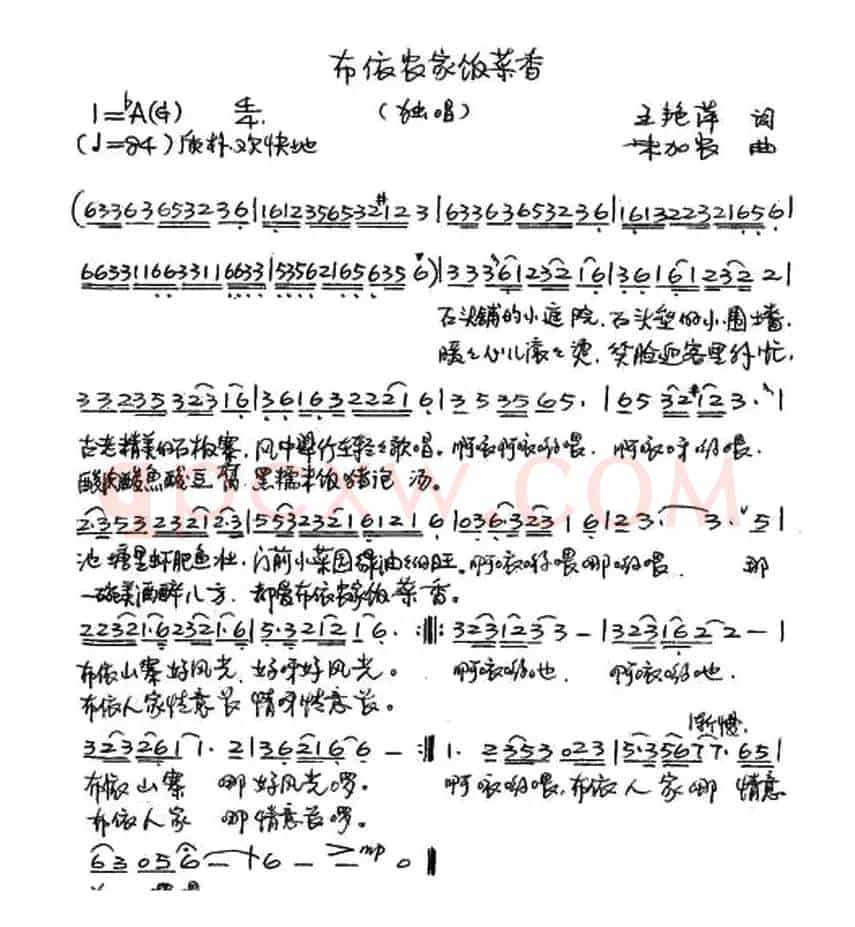 布依农家饭菜香
1=♭A(G) 4/4 (独唱) 王艳萍 词
(♩=84) 质朴、欢快地 加农 曲
(6336365323 6|1612356532#12 3|6336365323 6|1613223216 5 6|
665331166331166 33|535621656 35 6)|333612321 6|3616 12 32 2|
石头铺的小庭院,石头垒的小围墙,
暖暖心儿滚滚烫,笑脸迎客里外忙,
33235 3231 6|3616322221 6|353565.|6532#123.|
古老精美的石板寨,风中翠竹在轻轻歌唱。啊哝啊哝哟喂,啊哝呀哟喂,
酸酸鱼酸豆腐,黑糯米饭 汤。
2.3532321 2.3|553232161216|036.3231 6|23. 3. 5|
池塘里虾肥鱼壮,门前小菜园绿油油的旺。啊哝哟喂哪哟喂, 那
一碗美酒醉八方,都是布依农家饭菜香。
22321.62321.6|5.321216.:‖:3231233-|3231622-|
布依山寨好风光,好呀好风光。 啊哝哟也, 啊哝哟也,
布依人家情意长 情呀情意长。
3232611.2|362166-:‖1. 2353023|5.35677.65|
渐慢
布依山寨 哪好风光啰。 啊哝哟喂,布依人家哪 情意
布依人家 哪情意长啰。
63056-+6->mp0‖
qpcxw.com